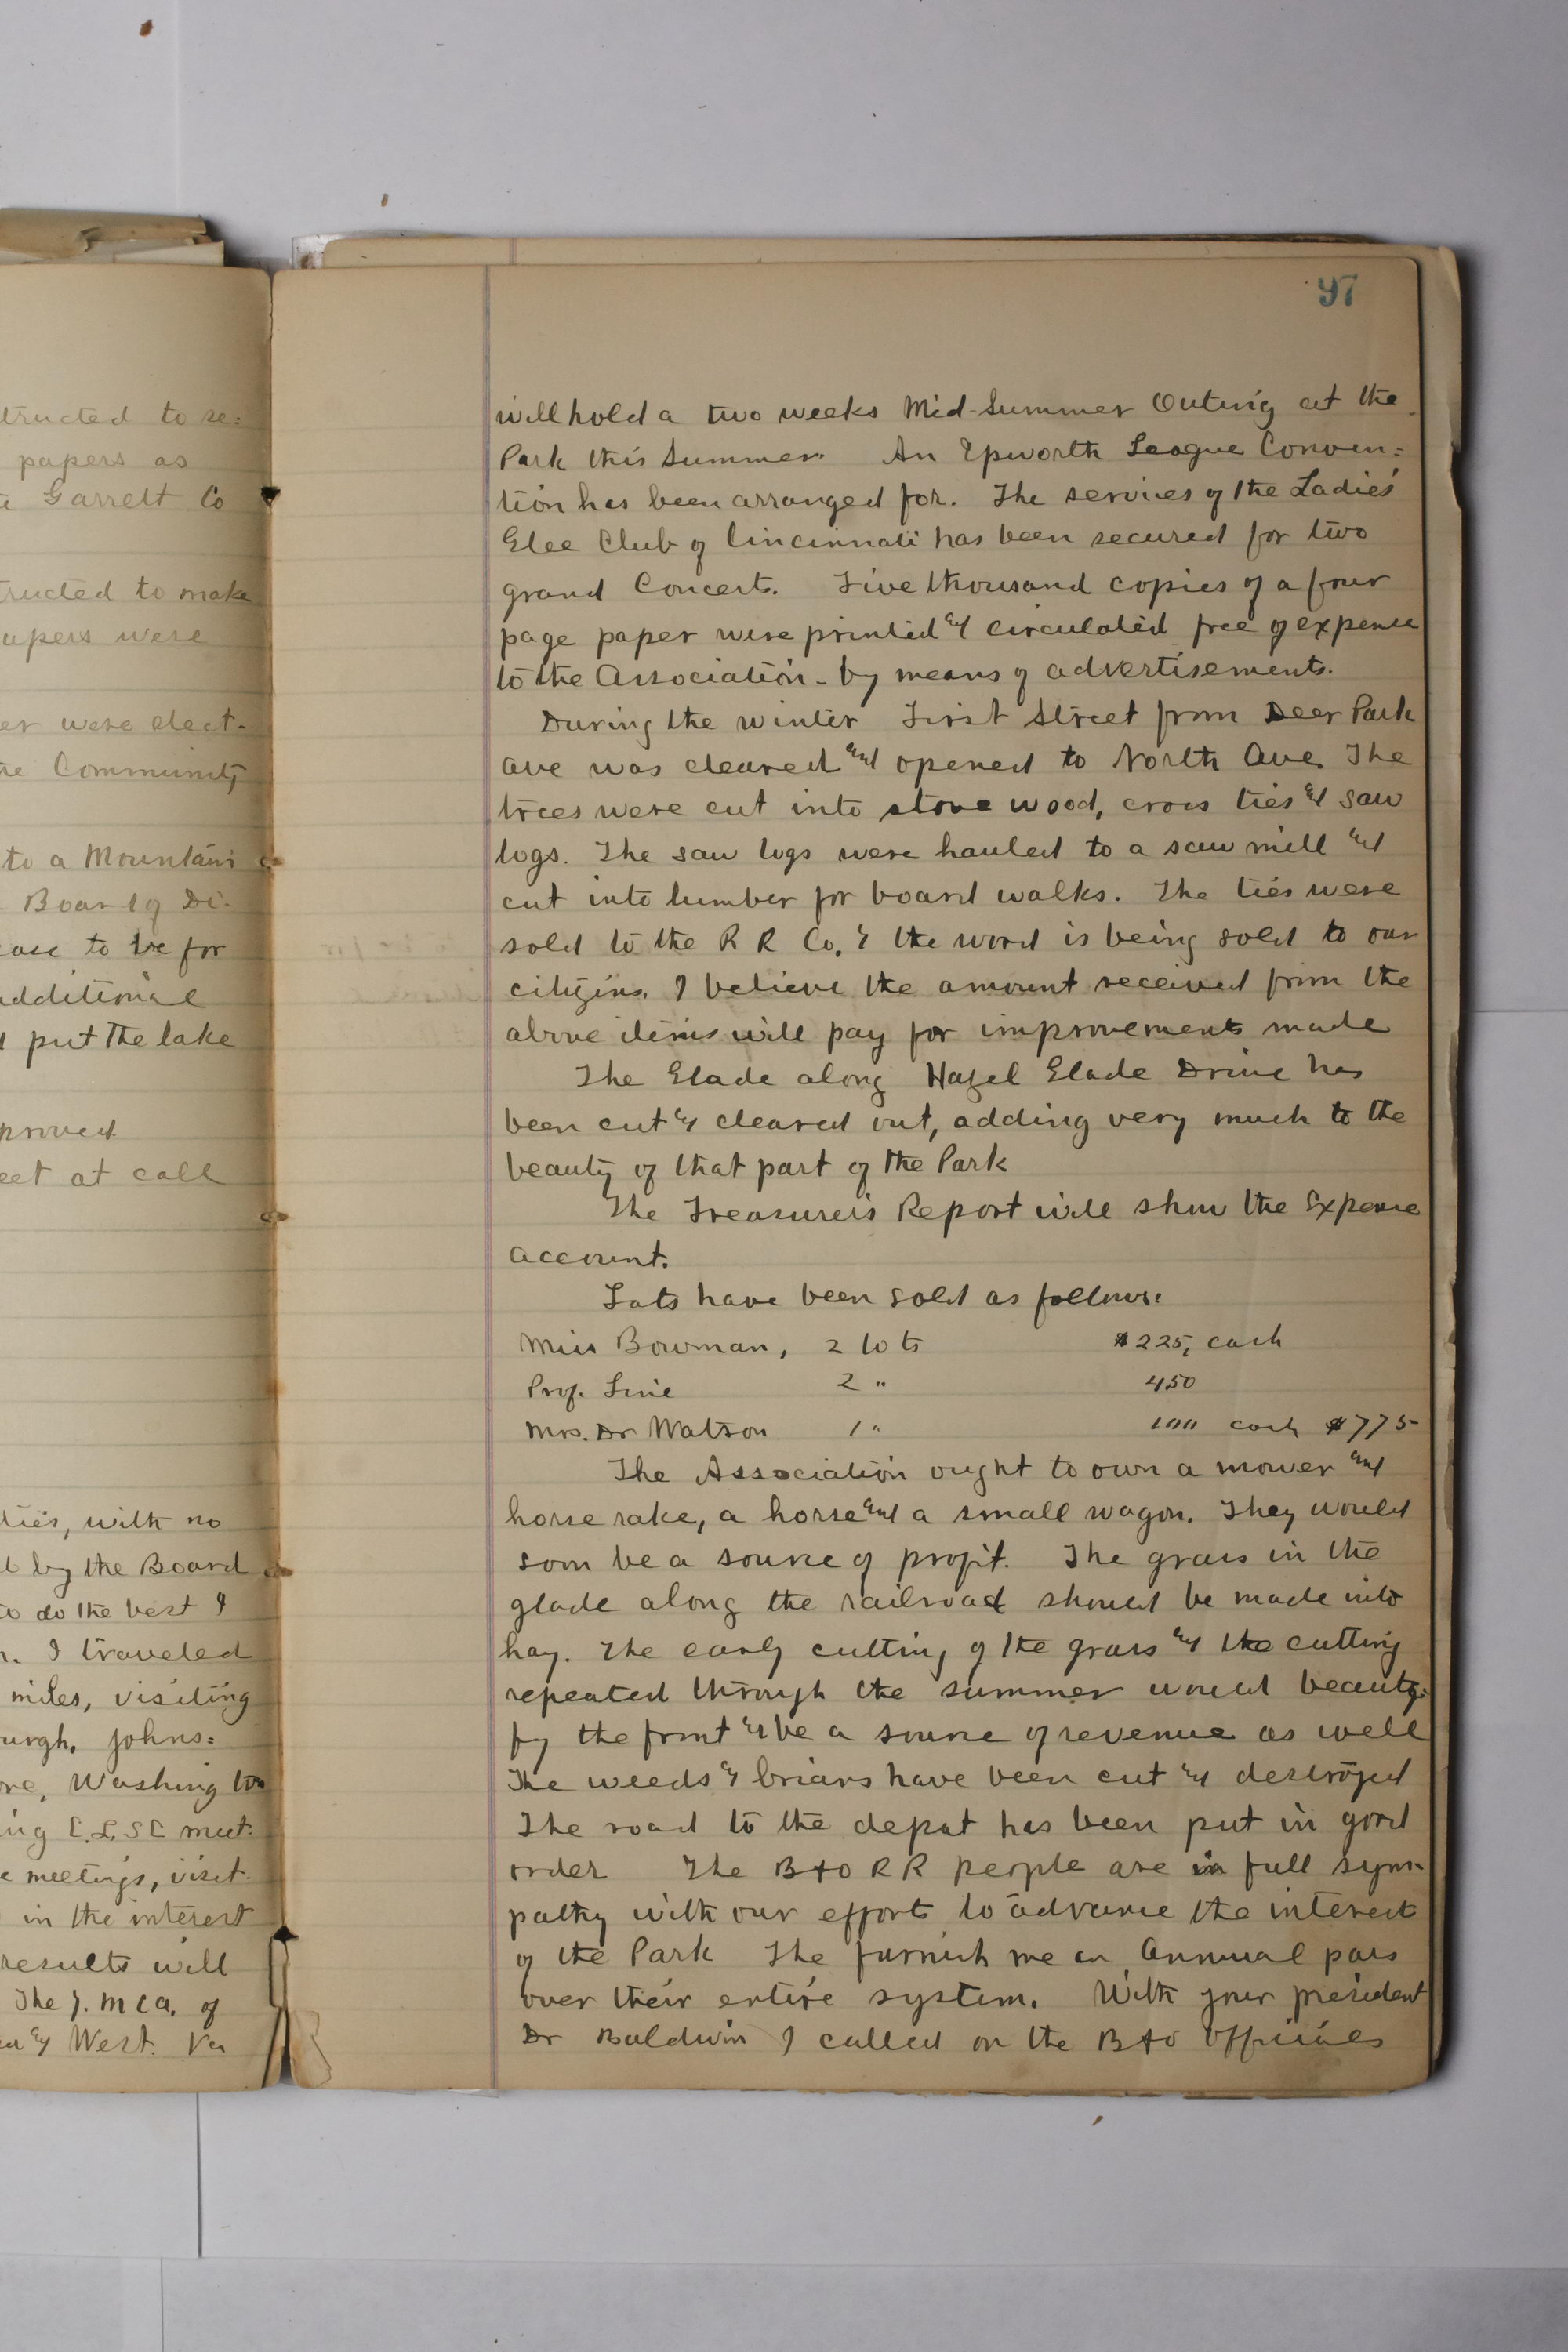 tructed to re=
papers as
Garrett Co
tructed to make
apers were
er were elect-
Community
to a Mountain
Board of Di-
ase to be for
additional
put the lake
proved
eet at call
ties, with no
by the Board
to do the best I
I traveled
miles, visiting
urgh, Johns=
ore, Washington
ing C.L.S.C meet-
e meetings, visit-
in the interest
results will
The Y.M.C.A. of
& West. Va
97
will hold a two weeks Mid-Summer Outing at the
Park this Summer. An Epworth League Conven=
tion has been arranged for. The services of the Ladies'
Glee Club of Cincinnati has been secured for two
grand Concerts. Five thousand copies of a four
page paper were printed and circulated free of expense
to the Association - by means of advertisements.
During the winter First Street from Deer Park
ave was cleared and opened to North Ave. The
trees were cut into stove wood, cross ties and saw
logs. The saw logs were hauled to a saw mill and
cut into lumber for board walks. The ties were
sold to the R R Co. & the wood is being sold to our
citizens. I believe the amount received from the
above items will pay for improvements made
The Glade along Hazel Glade Drive has
been cut & cleared out, adding very much to the
beauty of that part of the Park
The Treasurer's Report will show the Expense
account.
Lots have been sold as follows:
Miss Bowman, 2 lots $225, cash
Prof. Line 2 " 450
Mrs. Dr Watson 1 " 100 cash $775
The Association ought to own a mower and
horse rake, a horse and a small wagon. They would
soon be a source of profit. The grass in the
glade along the railroad should be made into
hay. The early cutting of the grass and the cutting
repeated through the summer would beauty-
fy the front & be a source of revenue as well
The weeds & briars have been cut and destroyed
The road to the depot has been put in good
order The B & O R R people are in full sym-
pathy with our efforts to advance the interest
of the Park The furnish me an Annual pass
over their entire system. With your president
Dr Baldwin I called on the B & O officials